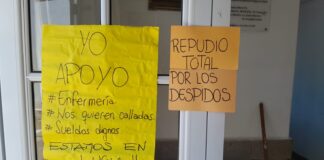 YO
APOYO
# Enfermería
# Nos quieren calladas
# Sueldos dignos
ESTAMOS EN
REPUDIO
TOTAL
POR LOS
DESPIDOS